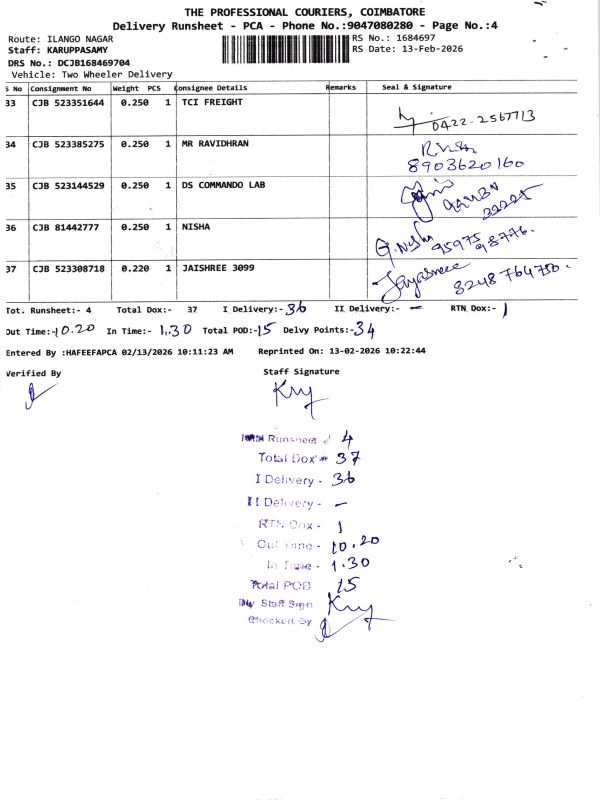 THE PROFESSIONAL COURIERS, COIMBATORE
Delivery Runsheet - PCA - Phone No.:9047080280 - Page No.:4
Route: ILANGO NAGAR
RS No.: 1684697
Staff: KARUPPASAMY
RS Date: 13-Feb-2026
DRS No.: DCJB168469704
Vehicle: Two Wheeler Delivery
S No Consignment No Weight PCS Consignee Details Remarks Seal & Signature
33 CJB 523351644 0.250 1 TCI FREIGHT
0422-2567713
34 CJB 523385275 0.250 1 MR RAVIDHRAN
8903620160
35 CJB 523144529 0.250 1 DS COMMANDO LAB
36 CJB 81442777 0.250 1 NISHA
G.Nisha 95975 98776.
37 CJB 523308718 0.220 1 JAISHREE 3099
Jayashree 8248764750.
Tot. Runsheet:- 4 Total Dox:- 37 I Delivery:- 36 II Delivery:- - RTN Dox:- 1
Out Time:- 10.20 In Time:- 1.30 Total POD:- 15 Delvy Points:- 34
Entered By :HAFEEFAPCA 02/13/2026 10:11:23 AM Reprinted On: 13-02-2026 10:22:44
Verified By Staff Signature
Runsheet 4
Total Dox 37
I Delivery - 36
II Delivery - -
RTN Dox - 1
Out Time - 10.20
In Time - 1.30
Total POD 15
Staff Sign
Checked By